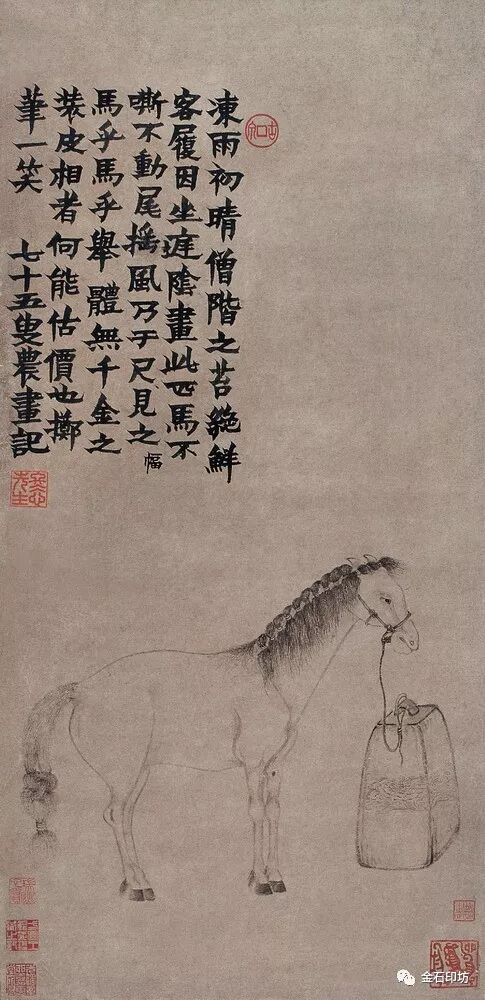 凍雨初晴僧階之苔絶鮮
客履因坐庭陰畫此匹馬不
嘶不動尾搖風乃于尺見之
幅
馬乎馬乎舉體無千金之
裝皮相者何能估價也擲
筆一笑 七十五叟農畫記
冬心先生
金石印坊